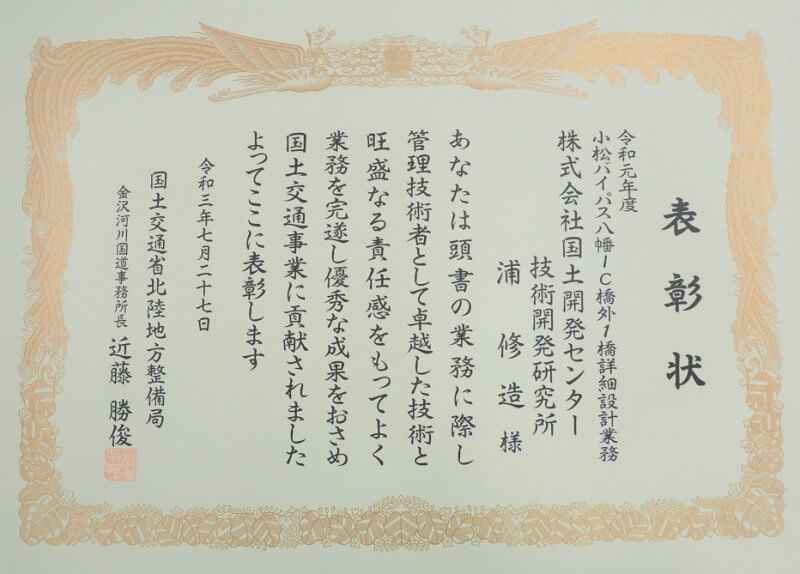 表彰状
令和元年度
小松バイパス八幡IC橋外1橋詳細設計業務
株式会社国土開発センター
技術開発研究所
浦修造様
あなたは頭書の業務に際し
管理技術者として卓越した技術と
旺盛なる責任感をもってよく
業務を完遂し優秀な成果をおさめ
国土交通事業に貢献されました
よってここに表彰します
令和三年七月二十七日
国土交通省北陸地方整備局
金沢河川国道事務所長 近藤勝俊